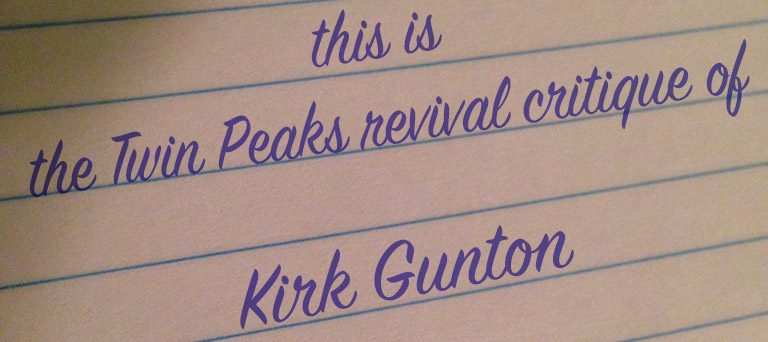 this is
the Twin Peaks revival critique of
Kirk Gunton